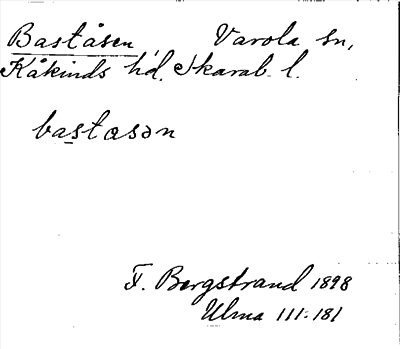 Baståsen, Varola sn,
Kåkinds hd, Skarab. l.
bastasən
F. Bergstrand 1898
Ulma 111:181